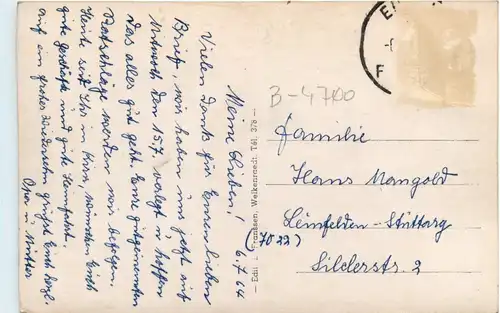 Meine Lieben!
6.7.64
Vielen Dank für Euren lieben
Brief, wir haben uns jetzt auf
Mittwoch den 15.7. verlegt u. hoffen
das alles gut geht. Eure gutgemeinten
Ratschläge werden wir befolgen.
Heute seit Ihr in Köln, wünschen Euch
gute Geschäfte und gute Heimfahrt.
Auf ein frohes Wiedersehn grüßt Euch herzl.
Opa u. Mutter
Edit. Franksen, Welkenraedt. Tél. 378
B-4700
Familie
Hans Mangold
Leinfelden-Stuttgart
(7022)
Silcherstr. 2